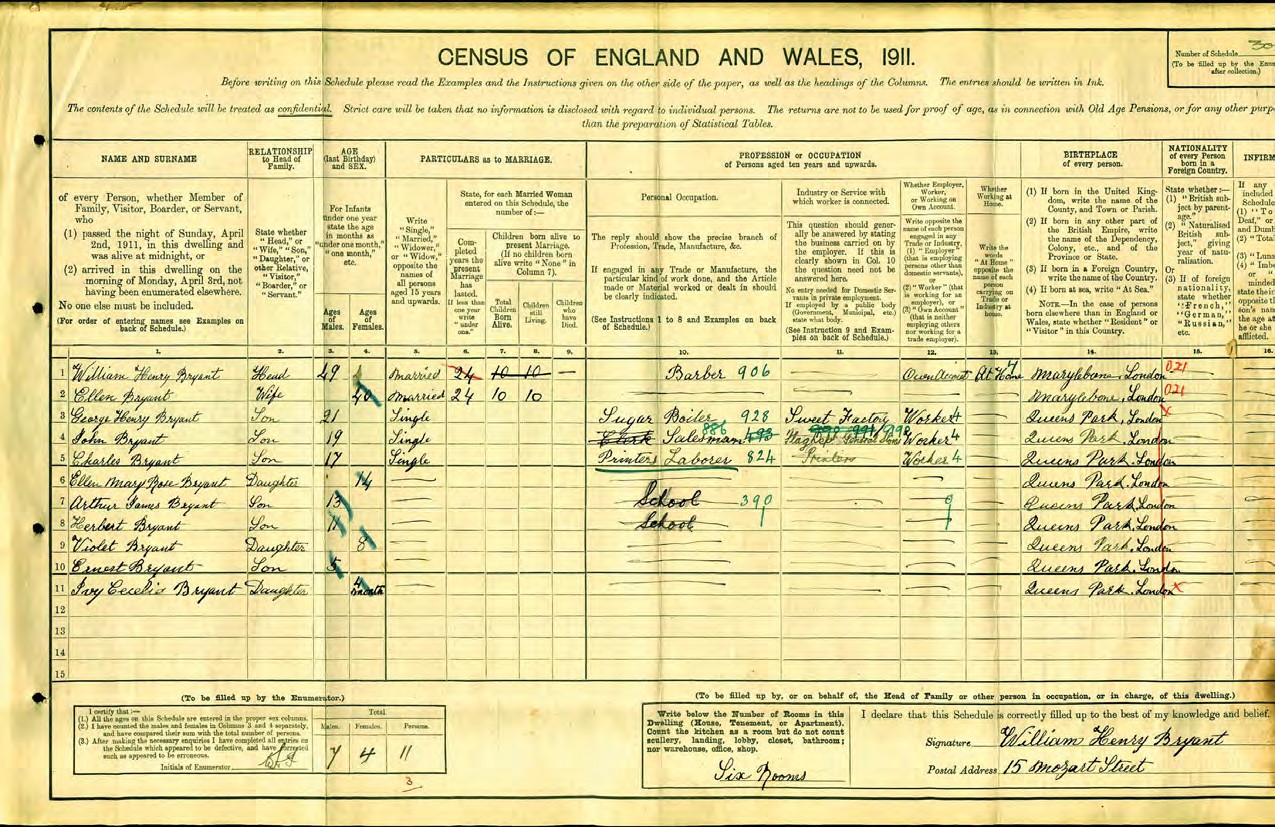 CENSUS OF ENGLAND AND WALES, 1911.
Number of Schedule 30
(To be filled up by the Enum
after collection.)
Before writing on this Schedule please read the Examples and the Instructions given on the other side of the paper, as well as the headings of the Columns. The entries should be written in Ink.
The contents of the Schedule will be treated as confidential. Strict care will be taken that no information is disclosed with regard to individual persons. The returns are not to be used for proof of age, as in connection with Old Age Pensions, or for any other purp
than the preparation of Statistical Tables.
NAME AND SURNAME
of every Person, whether Member of
Family, Visitor, Boarder, or Servant,
who
(1) passed the night of Sunday, April
2nd, 1911, in this dwelling and
was alive at midnight, or
(2) arrived in this dwelling on the
morning of Monday, April 3rd, not
having been enumerated elsewhere.
No one else must be included.
(For order of entering names see Examples on
back of Schedule.)
RELATIONSHIP
to Head of
Family.
State whether
"Head," or
"Wife," "Son,"
"Daughter," or
other Relative,
"Visitor,"
"Boarder," or
"Servant."
AGE
(last Birthday)
and SEX.
For Infants
under one year
state the age
in months as
"under one month,"
"one month,"
etc.
Ages
of
Males.
Ages
of
Females.
PARTICULARS as to MARRIAGE.
Write
"Single,"
"Married,"
"Widower,"
or "Widow,"
opposite the
names of
all persons
aged 15 years
and upwards.
State, for each Married Woman
entered on this Schedule, the
number of:—
Com-
pleted
years the
present
Marriage
has
lasted.
If less than
one year
write
"under
one."
Children born alive to
present Marriage.
(If no children born
alive write "None" in
Column 7).
Total
Children
Born
Alive.
Children
still
Living.
Children
who
have
Died.
PROFESSION or OCCUPATION
of Persons aged ten years and upwards.
Personal Occupation.
The reply should show the precise branch of
Profession, Trade, Manufacture, &c.
If engaged in any Trade or Manufacture, the
particular kind of work done, and the Article
made or Material worked or dealt in should
be clearly indicated.
(See Instructions 1 to 8 and Examples on back
of Schedule.)
Industry or Service with
which worker is connected.
This question should gener-
ally be answered by stating
the business carried on by
the employer. If this is
clearly shown in Col. 10
the question need not be
answered here.
No entry needed for Domestic Ser-
vants in private employment.
If employed by a public body
(Government, Municipal, etc.)
state what body.
(See Instruction 9 and Exam-
ples on back of Schedule.)
Whether Employer,
Worker,
or Working on
Own Account.
Write opposite the
name of each person
engaged in any
Trade or Industry,
(1) "Employer"
(that is employing
persons other than
domestic servants),
or
(2) "Worker" (that
is working for an
employer), or
(3) "Own Account"
(that is neither
employing others
nor working for a
trade employer).
Whether
Working at
Home.
Write the
words
"At Home"
opposite the
name of
each
person
carrying on
Trade or
Industry at
home.
BIRTHPLACE
of every person.
(1) If born in the United King-
dom, write the name of the
County, and Town or Parish.
(2) If born in any other part of
the British Empire, write
the name of the Dependency,
Colony, etc., and of the
Province or State.
(3) If born in a Foreign Country,
write the name of the Country.
(4) If born at sea, write "At Sea."
NOTE.—In the case of persons
born elsewhere than in England or
Wales, state whether "Resident" or
"Visitor" in this Country.
NATIONALITY
of every Person
born in a
Foreign Country.
State whether:—
(1) "British sub-
ject by parent-
age."
(2) "Naturalised
British sub-
ject," giving
year of natu-
ralisation.
Or
(3) If of foreign
nationality,
state whether
"French,"
"German,"
"Russian,"
etc.
INFIRM
1. 2. 3. 4. 5. 6. 7. 8. 9. 10. 11. 12. 13. 14. 15. 16.
1 William Henry Bryant Head 49 Married 24 10 10 — Barber 906 Own Account At Home Marylebone, London 021
2 Ellen Bryant Wife 40 Married 24 10 10 Marylebone, London 021
3 George Henry Bryant Son 21 Single Sugar Boiler 928 Sweet Factory Worker 4 Queens Park, London
4 John Bryant Son 19 Single Clerk Salesman 886 Worker 4 Queens Park, London
5 Charles Bryant Son 17 Single Printers Laborer 824 Printers Worker 4 Queens Park, London
6 Ellen Mary Rose Bryant Daughter 14 Queens Park, London
7 Arthur James Bryant Son 13 School 390 Queens Park, London
8 Herbert Bryant Son 11 School Queens Park, London
9 Violet Bryant Daughter 8 Queens Park, London
10 Ernest Bryant Son 5 Queens Park, London
11 Ivy Cecelia Bryant Daughter 4 month Queens Park, London
12
13
14
15
(To be filled up by the Enumerator.)
I certify that:—
(1.) All the ages on this Schedule are entered in the proper sex columns.
(2.) I have counted the males and females in Columns 3 and 4 separately,
and have compared their sum with the total number of persons.
(3.) After making the necessary enquiries I have completed all entries on
the Schedule which appeared to be defective, and have corrected
such as appeared to be erroneous.
Initials of Enumerator
Total
Males. Females. Persons.
7 4 11
3
(To be filled up by, or on behalf of, the Head of Family or other person in occupation, or in charge, of this dwelling.)
Write below the Number of Rooms in this
Dwelling (House, Tenement, or Apartment).
Count the kitchen as a room but do not count
scullery, landing, lobby, closet, bathroom;
nor warehouse, office, shop.
Six Rooms
I declare that this Schedule is correctly filled up to the best of my knowledge and belief.
Signature William Henry Bryant
Postal Address 15 Mozart Street